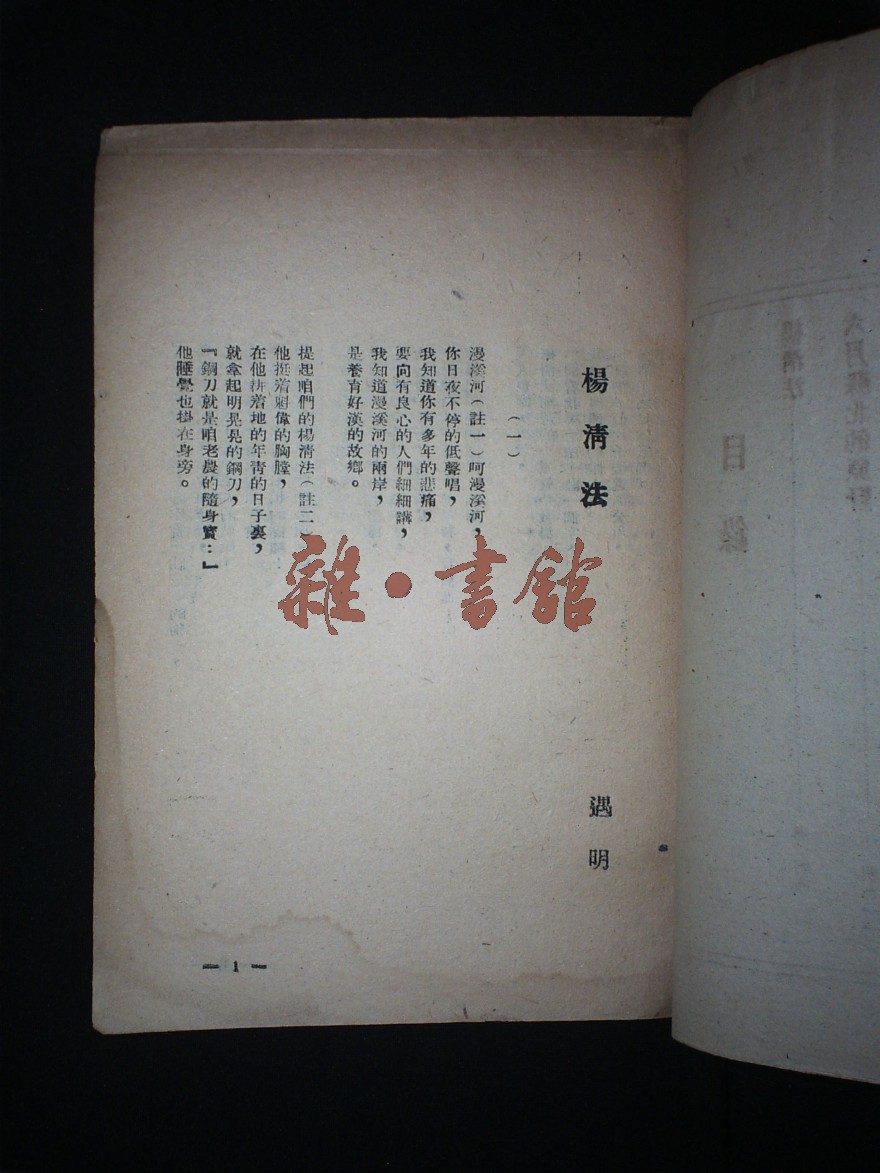 楊清法
遇明
(一)
漫溪河(註一)呵漫溪河，
你日夜不停的低聲唱，
我知道你有多年的悲痛，
要向有良心的人們細細講，
我知道漫溪河的兩岸，
是養育好漢的故鄉。
提起咱們的楊清法(註二)
他挺着魁偉的胸膛，
在他耕着地的年青的日子裏，
就拿起明晃晃的鋼刀，
『鋼刀就是咱老農的隨身寶：』
他睡覺也掛在身旁。
— 1 —
雜·書館
目錄
楊清法